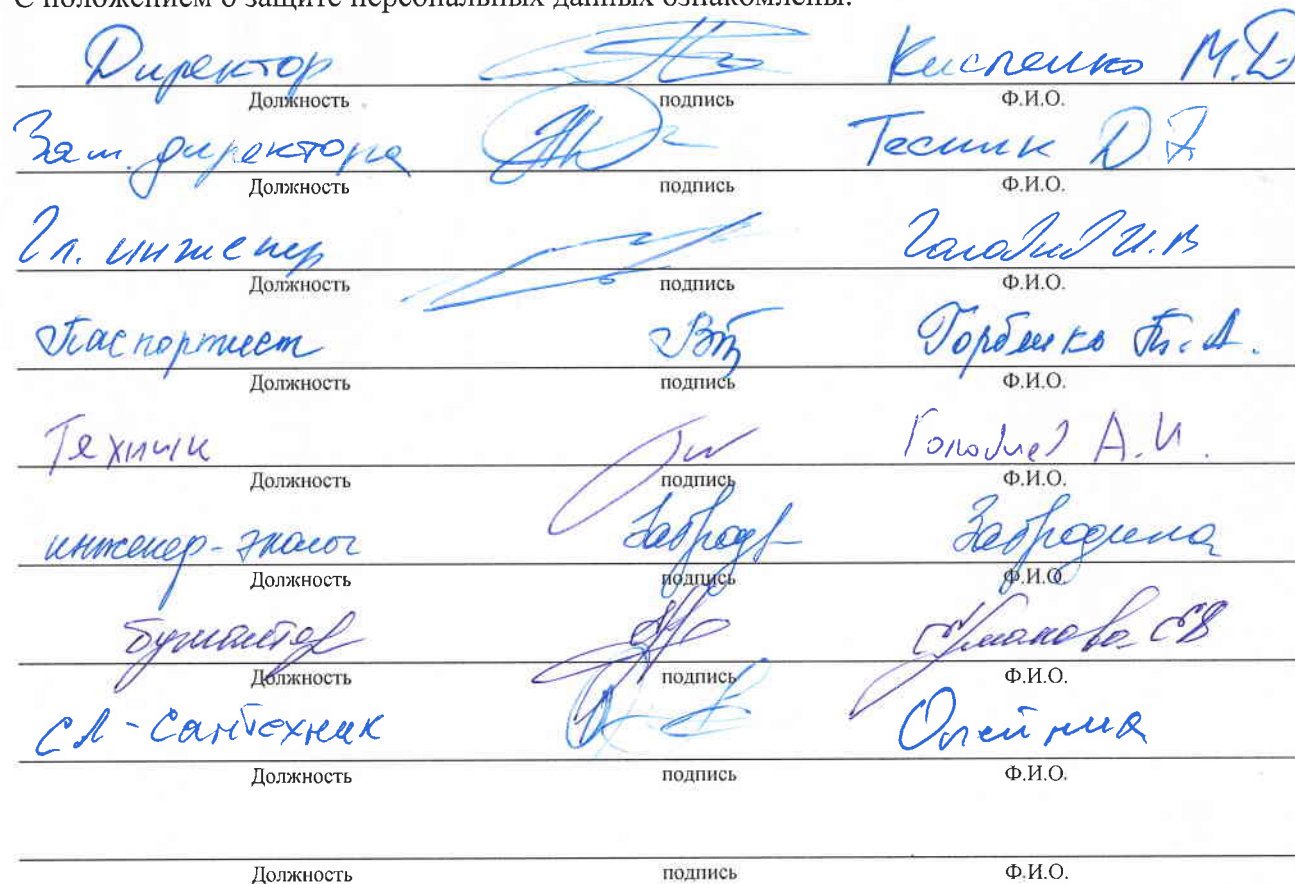 С положением о защите персональных данных ознакомлены:
Директор Кисленко М.Д
Должность подпись Ф.И.О.
Зам. директора Тесник Д
Должность подпись Ф.И.О.
Гл. инженер И.В
Должность подпись Ф.И.О.
Паспортист Горбенко Т.А.
Должность подпись Ф.И.О.
Техник А.И.
Должность подпись Ф.И.О.
инженер-эколог Забродина
Должность подпись Ф.И.О.
бухгалтер ЕВ
Должность подпись Ф.И.О.
сл-сантехник
Должность подпись Ф.И.О.
Должность подпись Ф.И.О.